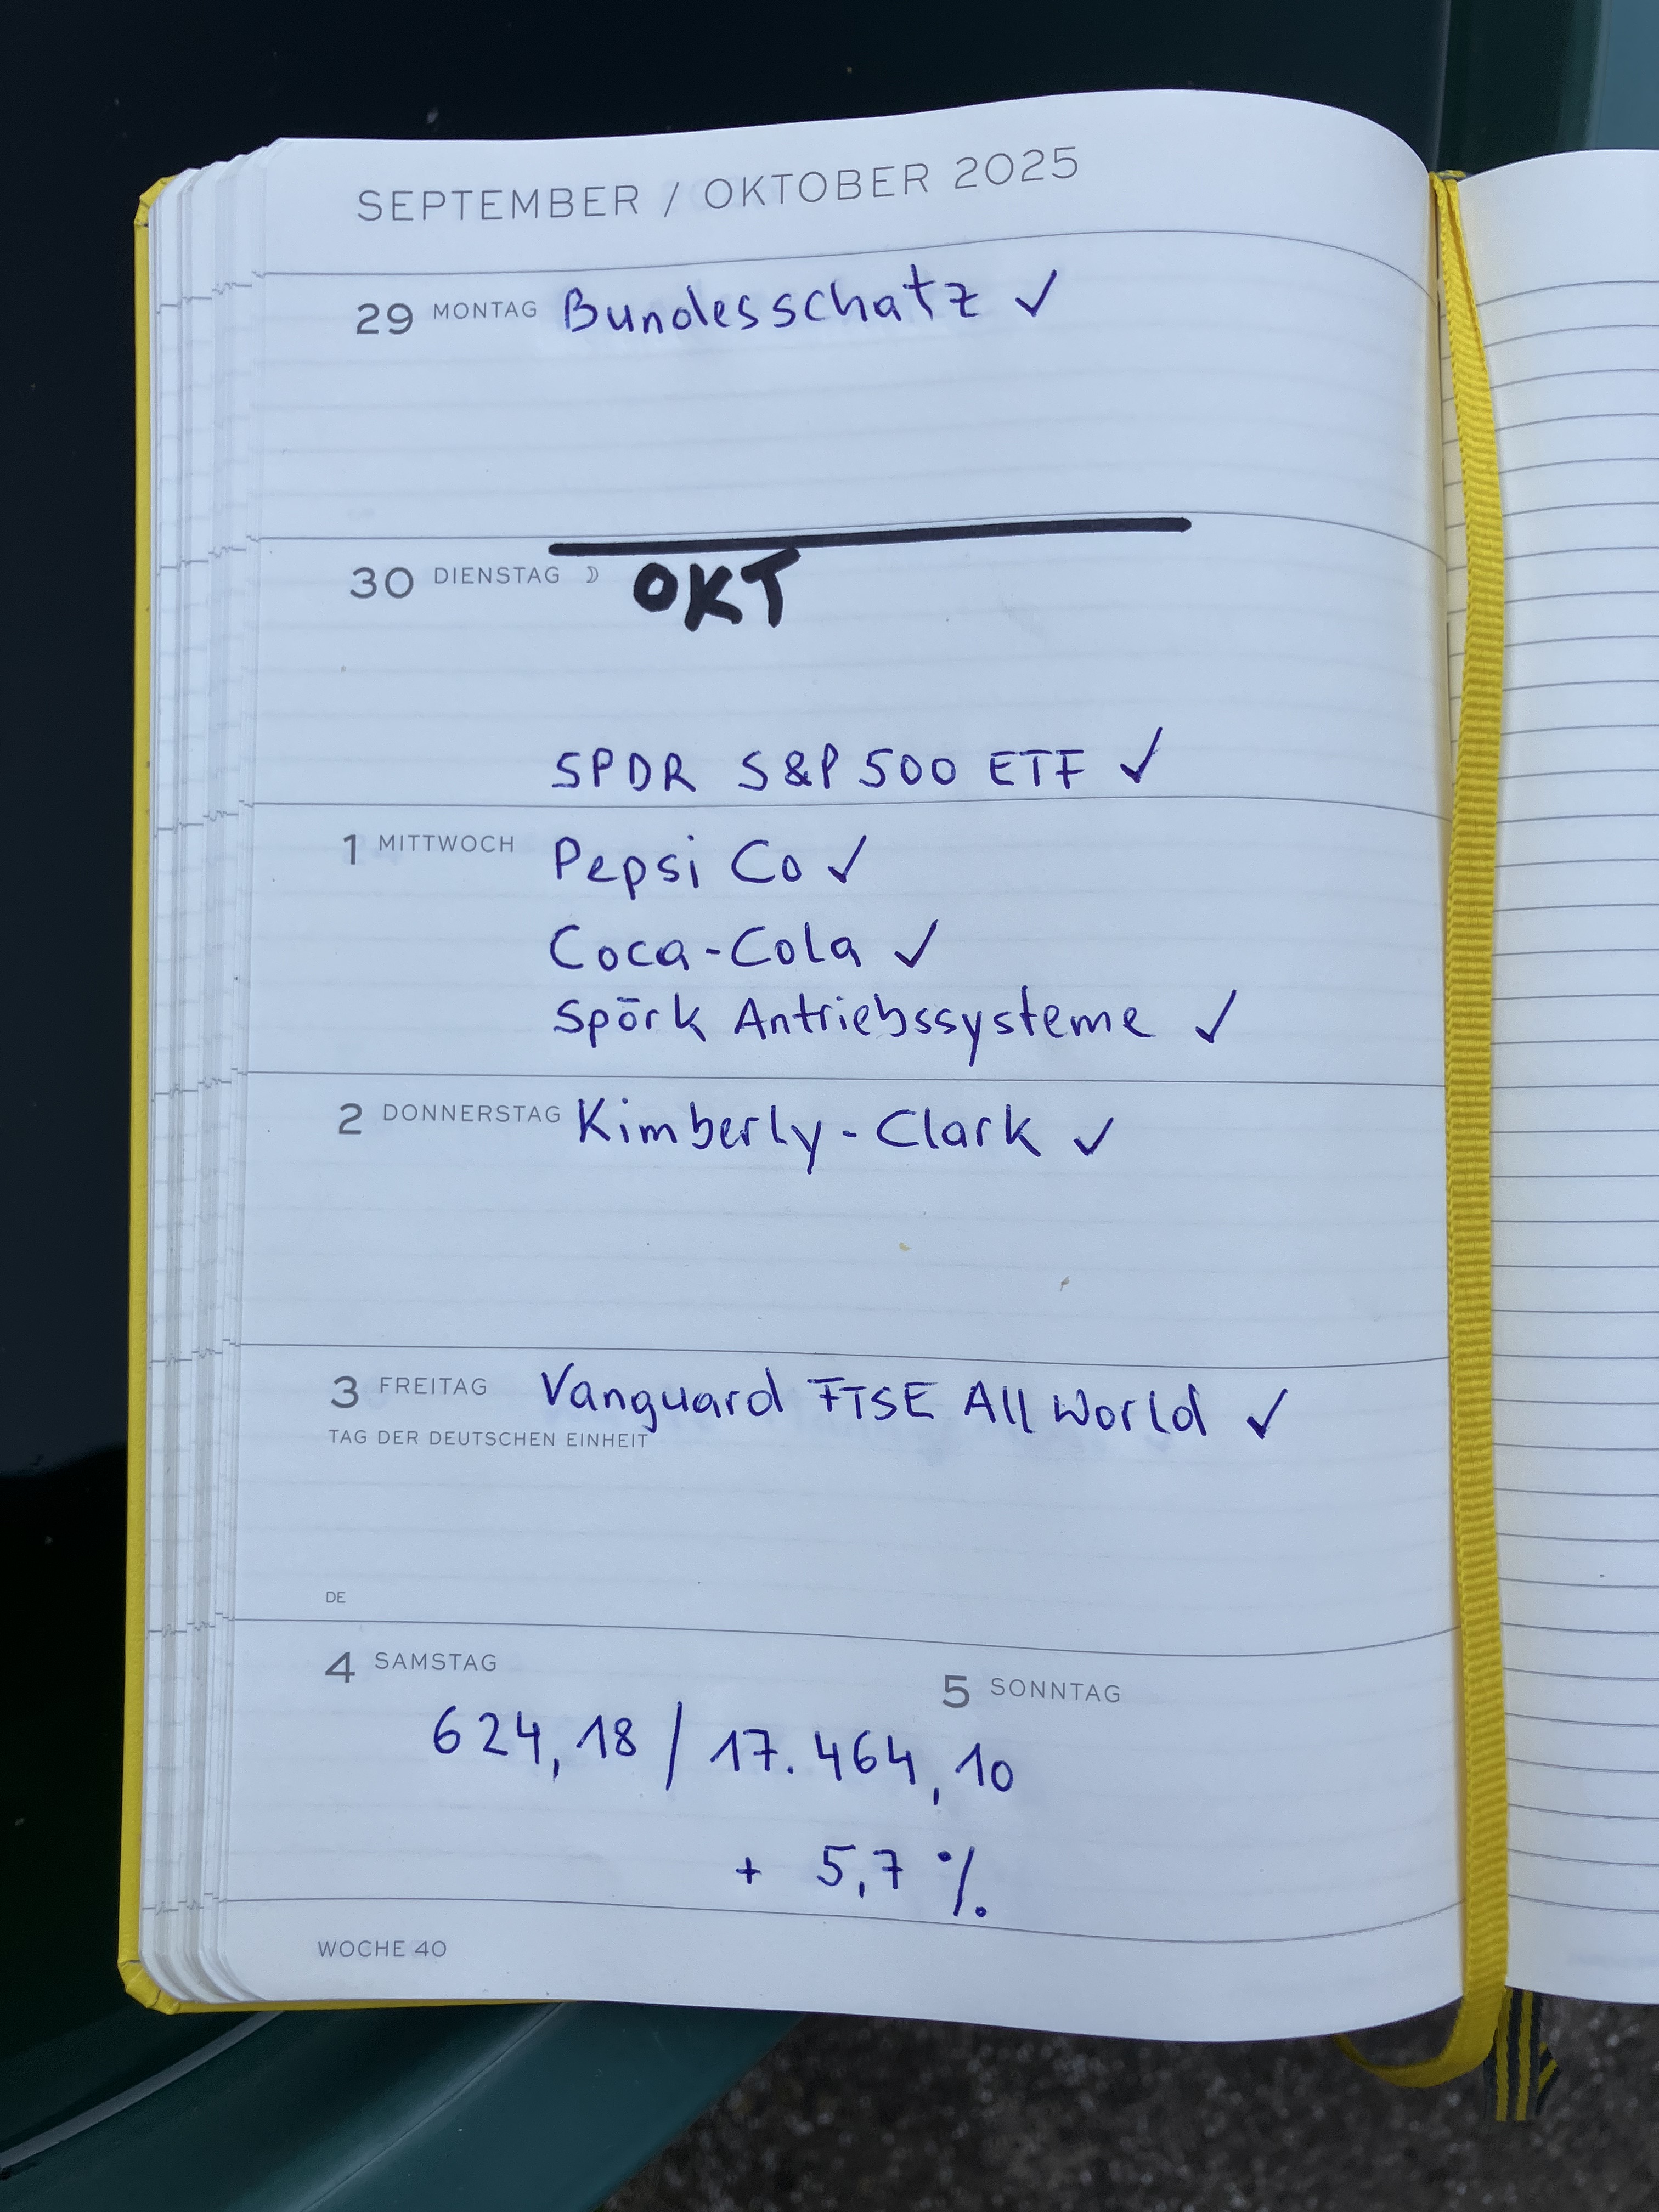 SEPTEMBER / OKTOBER 2025
29 MONTAG Bundesschatz ✓
30 DIENSTAG ☽ OKT
SPDR S&P 500 ETF ✓
1 MITTWOCH Pepsi Co ✓
Coca-Cola ✓
Spörk Antriebssysteme ✓
2 DONNERSTAG Kimberly-Clark ✓
3 FREITAG Vanguard FTSE All World ✓
TAG DER DEUTSCHEN EINHEIT
DE
4 SAMSTAG
5 SONNTAG
624,18 / 17.464,10
+ 5,7 %
WOCHE 40